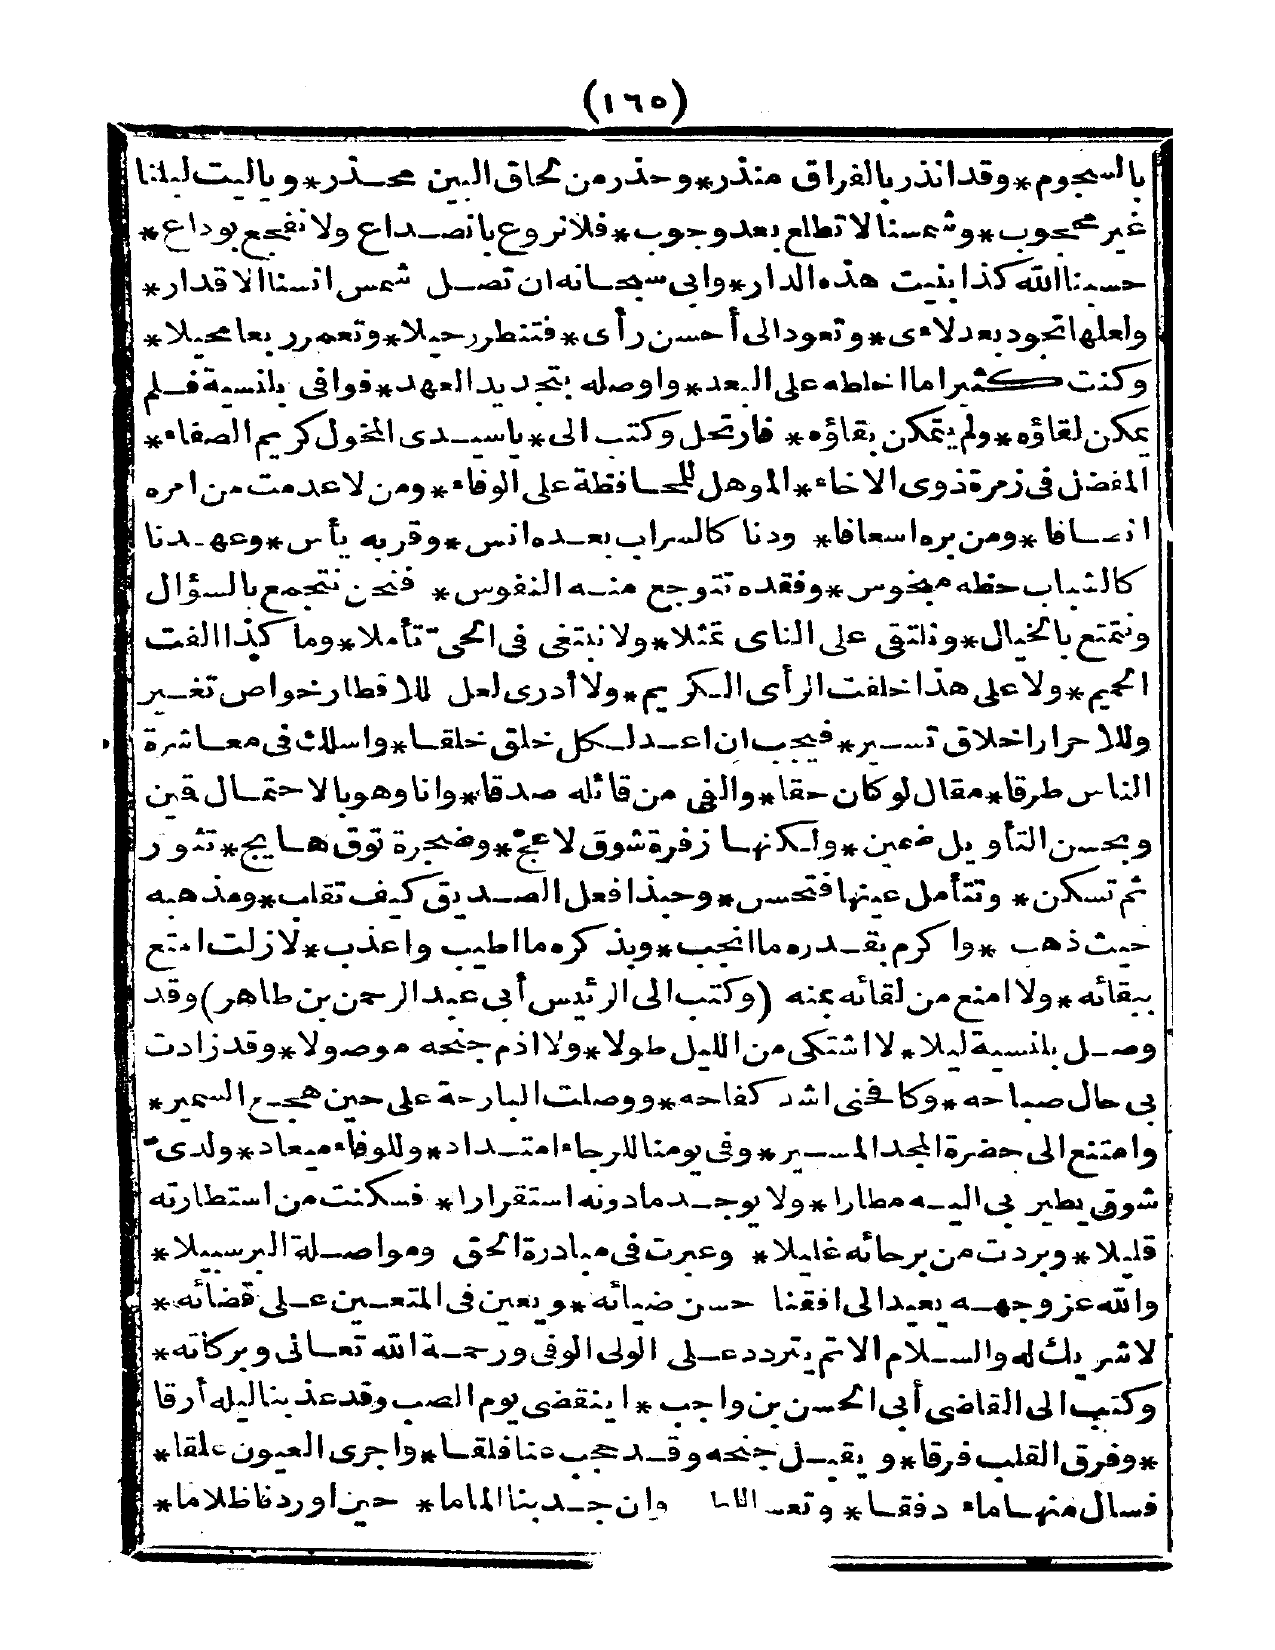 (١٦٥)
بالسجوم * وقد انذر بالفراق منذر * وحذر من لحاق البين محذر * وياليت ليلنا
غير محجوب * وشمسنا لا تطلع بعد وجوب * فلا نروع بانصداع ولا نفجع بوداع *
حسبنا الله كذا بنيت هذه الدار * وابى سبحانه ان تصل شمس انسنا الاقدار *
ولعلها تجود بعد لاءى * وتعود الى أحسن رأى * فتنظر رحيلا * وتعمر ربعا محيلا *
وكنت كثيرا ما اخاطه على البعد * واوصله بتجديد العهد * فوافى بلنسية فلم
يمكن لقاؤه * ولم يتمكن بقاؤه * فارتحل وكتب الى * ياسيدى المخول كريم الصفاء *
المفضل فى زمرة ذوى الاخاء * الموهل للمحافظة على الوفاء * ومن لا عدمت من امره
انصافا * ومن بره اسعافا * ودنا كالسراب بعده انس * وقربه يأس * وعهدنا
كالشباب حظه مبخوس * وفقده تتوجع منه النفوس * فنحن نتجمع بالسؤال
ونتمتع بالخيال * ونلتقى على الناى تمثلا * ولا نبتغى فى الحى تأملا * وما كذا الفت
الحميم * ولا على هذا خلفت الرأى الكريم * ولا أدرى لعل للاقطار خواص تغير
وللاحرار اخلاق تسير * فيجب ان اعد لكل خلق خلقا * واسلك فى معاشرة
الناس طرقا * مقال لو كان حقا * والفى من قائله صدقا * وانا وهو بالاحتمال قين
وبحسن التأويل ضمين * ولكنها زفرة شوق لاعج * وضجرة توق هايج * تثور
ثم تسكن * وتتأمل عينها فتحسن * وحبذا فعل الصديق كيف تقلب * ومذهبه
حيث ذهب * واكرم بقدره ما انجب * وبذكره ما اطيب واعذب * لا زلت امتع
ببقائه * ولا امنع من لقائه بمنه (وكتب الى الرئيس أبى عبد الرحمن بن طاهر) وقد
وصل بلنسية ليلا * لا اشتكى من الليل طولا * ولا اذم جنحه موصولا * وقد زادت
بى حال صباحه * وكافحنى اشد كفاحه * ووصلت البارحة على حين هجع السمير *
وامتنع الى حضرة المجد المسير * وفى يومنا للرجاء امتداد * وللوفاء ميعاد * ولدى
شوق يطير بى اليه مطارا * ولا يوجد ما دونه استقرارا * فسكنت من استطارته
قليلا * وبردت من برحائه غليلا * وعبرت فى مبادرة الحق ومواصلة البر سبيلا *
والله عز وجهه يعيد الى افقنا حسن ضيائه * ويعين فى المتعين على قضائه *
لا شريك له والسلام الاتم يتردد على الولى الوفى ورحمة الله تعالى وبركاته *
وكتب الى القاضى أبى الحسن بن واجب * اينقضى يوم الصب وقد عذبنا ليله أرقا
* وفرق القلب فرقا * ويقبل جنحه وقد حجب عنا فلقا * واجرى العيون علقا *
فسال منها ماء دفقا * وان جد بنا الماما * حين اوردنا ظلاما *